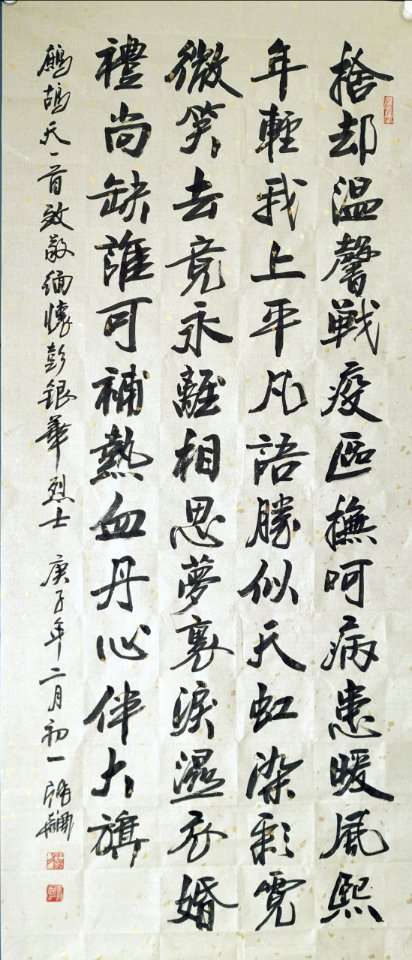 捨却温馨戰疫區撫呵病患暖風熙
年輕我上平凡語勝似天虹染彩霓
微笑去竟永離相思夢裏淚濕衣婚
禮尚缺誰可補熱血丹心伴大旗
鷓鴣天一首致敬緬懷彭銀華烈士 庚子年二月初一